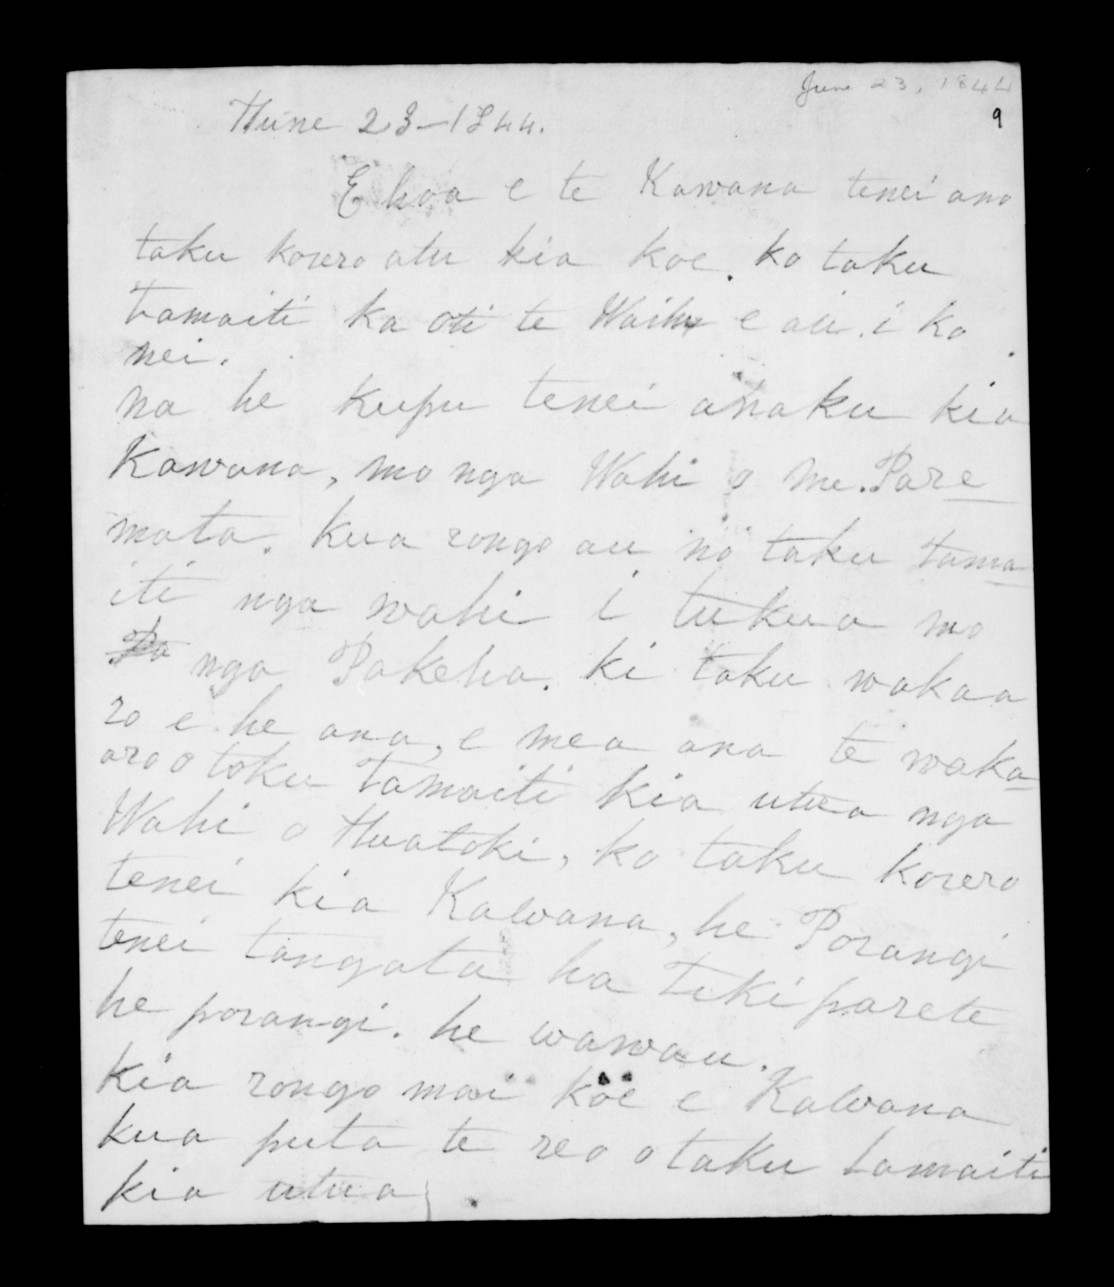 June 23, 1844
9
Hune 23-1844.
E hoa e te Kawana tenei ano
taku korero atu kia koe. ko taku
tamaiti ka oti te Waihu e au. i ko
nei.
na he kupu tenei anaku kia
Kawana, mo nga Wahi o me. Pare
mata. kua rongo au no taku tama
iti nga wahi i tukua mo
nga Pakeha. ki taku wakaa
ro e he ana, e mea ana te waka
aro o toku tamaiti kia utua nga
Wahi o Huatoki, ko taku korero
tenei kia Kawana, he Porangi
tenei tangata ha Tiki parete
he porangi. he wawau.
kia rongo mai koe e Kawana
kua puta te reo o taku tamaiti
kia utua